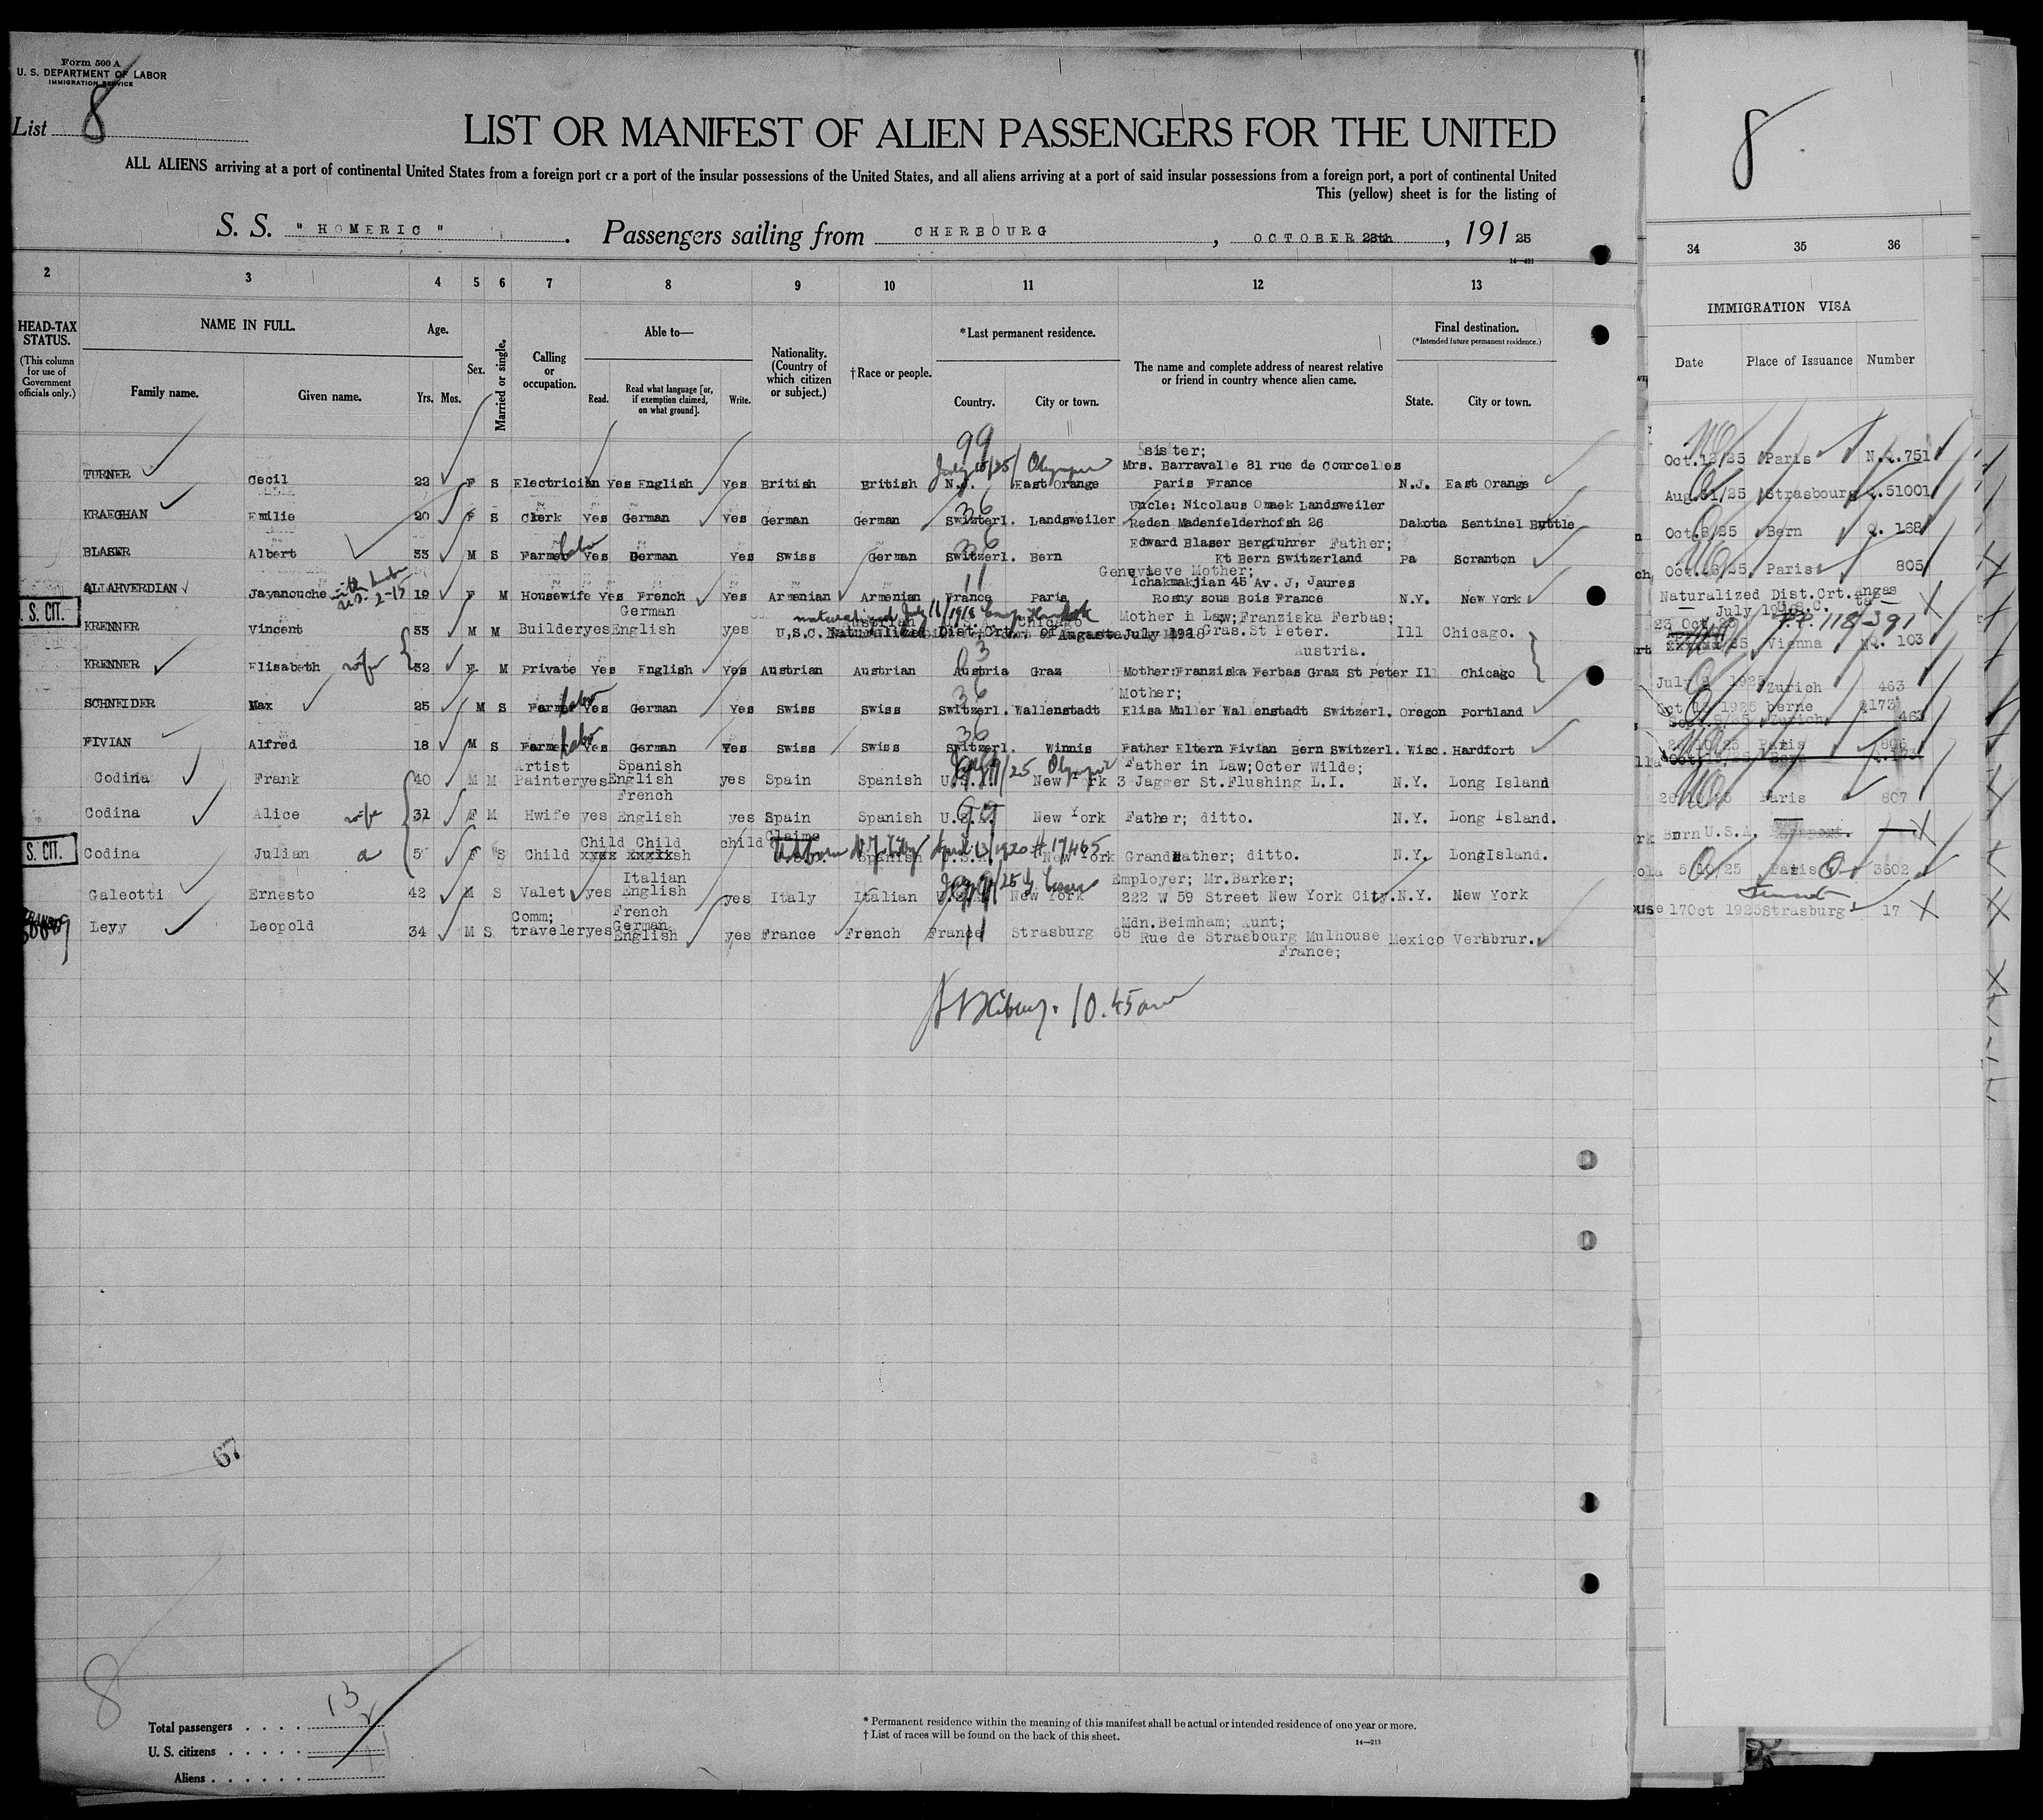 Form 500 A
U. S. DEPARTMENT OF LABOR
IMMIGRATION SERVICE
List 8
LIST OR MANIFEST OF ALIEN PASSENGERS FOR THE UNITED
ALL ALIENS arriving at a port of continental United States from a foreign port or a port of the insular possessions of the United States, and all aliens arriving at a port of said insular possessions from a foreign port, a port of continental United
This (yellow) sheet is for the listing of
S. S. "HOMERIC". Passengers sailing from CHERBOURG, OCTOBER 28th, 191 25
14—491
2 3 4 5 6 7 8 9 10 11 12 13
HEAD-TAX STATUS. (This column for use of Government officials only.)
NAME IN FULL. Family name. Given name.
Age. Yrs. Mos.
Sex.
Married or single.
Calling or occupation.
Able to— Read. Read what language [or, if exemption claimed, on what ground]. Write.
Nationality. (Country of which citizen or subject.)
†Race or people.
*Last permanent residence. Country. City or town.
The name and complete address of nearest relative or friend in country whence alien came.
Final destination. (*Intended future permanent residence.) State. City or town.
99
sister;
July 15/25 Olympic Mrs. Barravalle 81 rue de Courcelles
TURNER Cecil 22 F S Electrician Yes English Yes British British N.J. East Orange Paris France N.J. East Orange
36 Uncle: Nicolaus Omaek Landsweiler
KRAEGHAN Emilie 20 F S Clerk Yes German Yes German German Switzerl. Landsweiler Reden Madenfelderhofsh 26 Dakota Sentinel Buttle
36 Edward Blaser Bergfuhrer Father;
BLASER Albert 33 M S Farmer labo Yes German Yes Swiss German Switzerl. Bern Kt Bern Switzerland Pa Scranton
Genevieve Mother;
11 Tchakmakjian 45 Av. J, Jaures
ALLAHVERDIAN Jayanouche 2-15 19 F M Housewife Yes French Yes Armenian Armenian France Paris Rosny sous Bois France N.Y. New York
S. CIT.
German naturalized July 16/1918 Mother in Law; Franziska Ferbas;
KRENNER Vincent 33 M M Builder yes English yes U.S.C. Naturalized Dist. Crt. of Augasta July 1918 Gras. St Peter. Ill Chicago.
Austria.
03
KRENNER Elisabeth wife 32 F M Private Yes English Yes Austrian Austrian Austria Graz Mother: Franziska Ferbas Graz St Peter Ill Chicago
36 Mother;
SCHNEIDER Max 25 M S Farmer labo Yes German Yes Swiss Swiss Switzerl. Wallenstadt Elisa Muller Wallenstadt Switzerl. Oregon Portland
36
FIVIAN Alfred 18 M S Farmer labo Yes German Yes Swiss Swiss Switzerl. Winnis Father Eltern Fivian Bern Switzerl. Wisc. Hardfort
Artist Spanish /25 Olympic Father in Law; Octer Wilde;
Codina Frank 40 M M Painter yes English yes Spain Spanish U.S.A. New York 3 Jagger St. Flushing L.I. N.Y. Long Island
French
Codina Alice wife 31 F M Hwife yes English yes Spain Spanish U.S.A. New York Father; ditto. N.Y. Long Island.
S. CIT.
Child Child child Claims
Codina Julian a 5 F S Child Spanish April 13/1920 # 17465 U.S.A. New York Grandfather; ditto. N.Y. LongIsland.
Italian Employer; Mr. Barker;
Galeotti Ernesto 42 M S Valet yes English yes Italy Italian U.S.A. New York 222 W 59 Street New York City. N.Y. New York
Comm; French German Mdn. Beimham; Aunt;
Levy Leopold 34 M S traveler yes English yes France French France Strasburg 68 Rue de Strasbourg Mulhouse Mexico Verabrur.
11 France;
10.45 am
67
8
Total passengers 13
U. S. citizens 2
Aliens 11
* Permanent residence within the meaning of this manifest shall be actual or intended residence of one year or more.
† List of races will be found on the back of this sheet.
14—213
8
34 35 36
IMMIGRATION VISA
Date Place of Issuance Number
Oct. 12/25 Paris N.Q. 751
Aug. 31/25 Strasbourg Q. 51001
Oct. 8/25 Bern Q. 168
Oct. 16/25 Paris 805
Naturalized Dist. Crt.
July 1918
23 Oct. 25 P.P. 118391
Vienna NQ. 103
July 2 1925 Zurich 463
Oct 13 1925 berne Q173
Zurich 463
Paris 806
Q. 173
Paris 807
Born U.S.A.
5/10/25 Paris 3502
17 Oct 1925 Strasburg 17